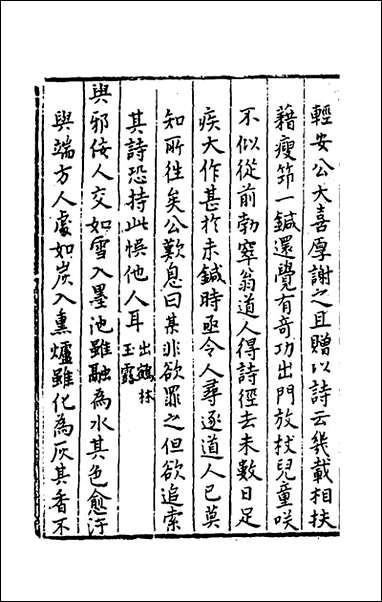 輕安公大喜厚謝之且贈以詩云幾載相扶
藉瘦筇一鍼還覺有奇功出門放杖兒童咲
不似從前勃窣翁道人得詩徑去未數日足
疾大作甚於未鍼時亟令人尋逐道人已莫
知所往矣公歎息曰某非欲罪之但欲追索
其詩恐持此悞他人耳 出鶴林
玉露
與邪佞人交如雪入墨池雖融為水其色愈汙
與端方人處如炭入熏爐雖化為灰其香不